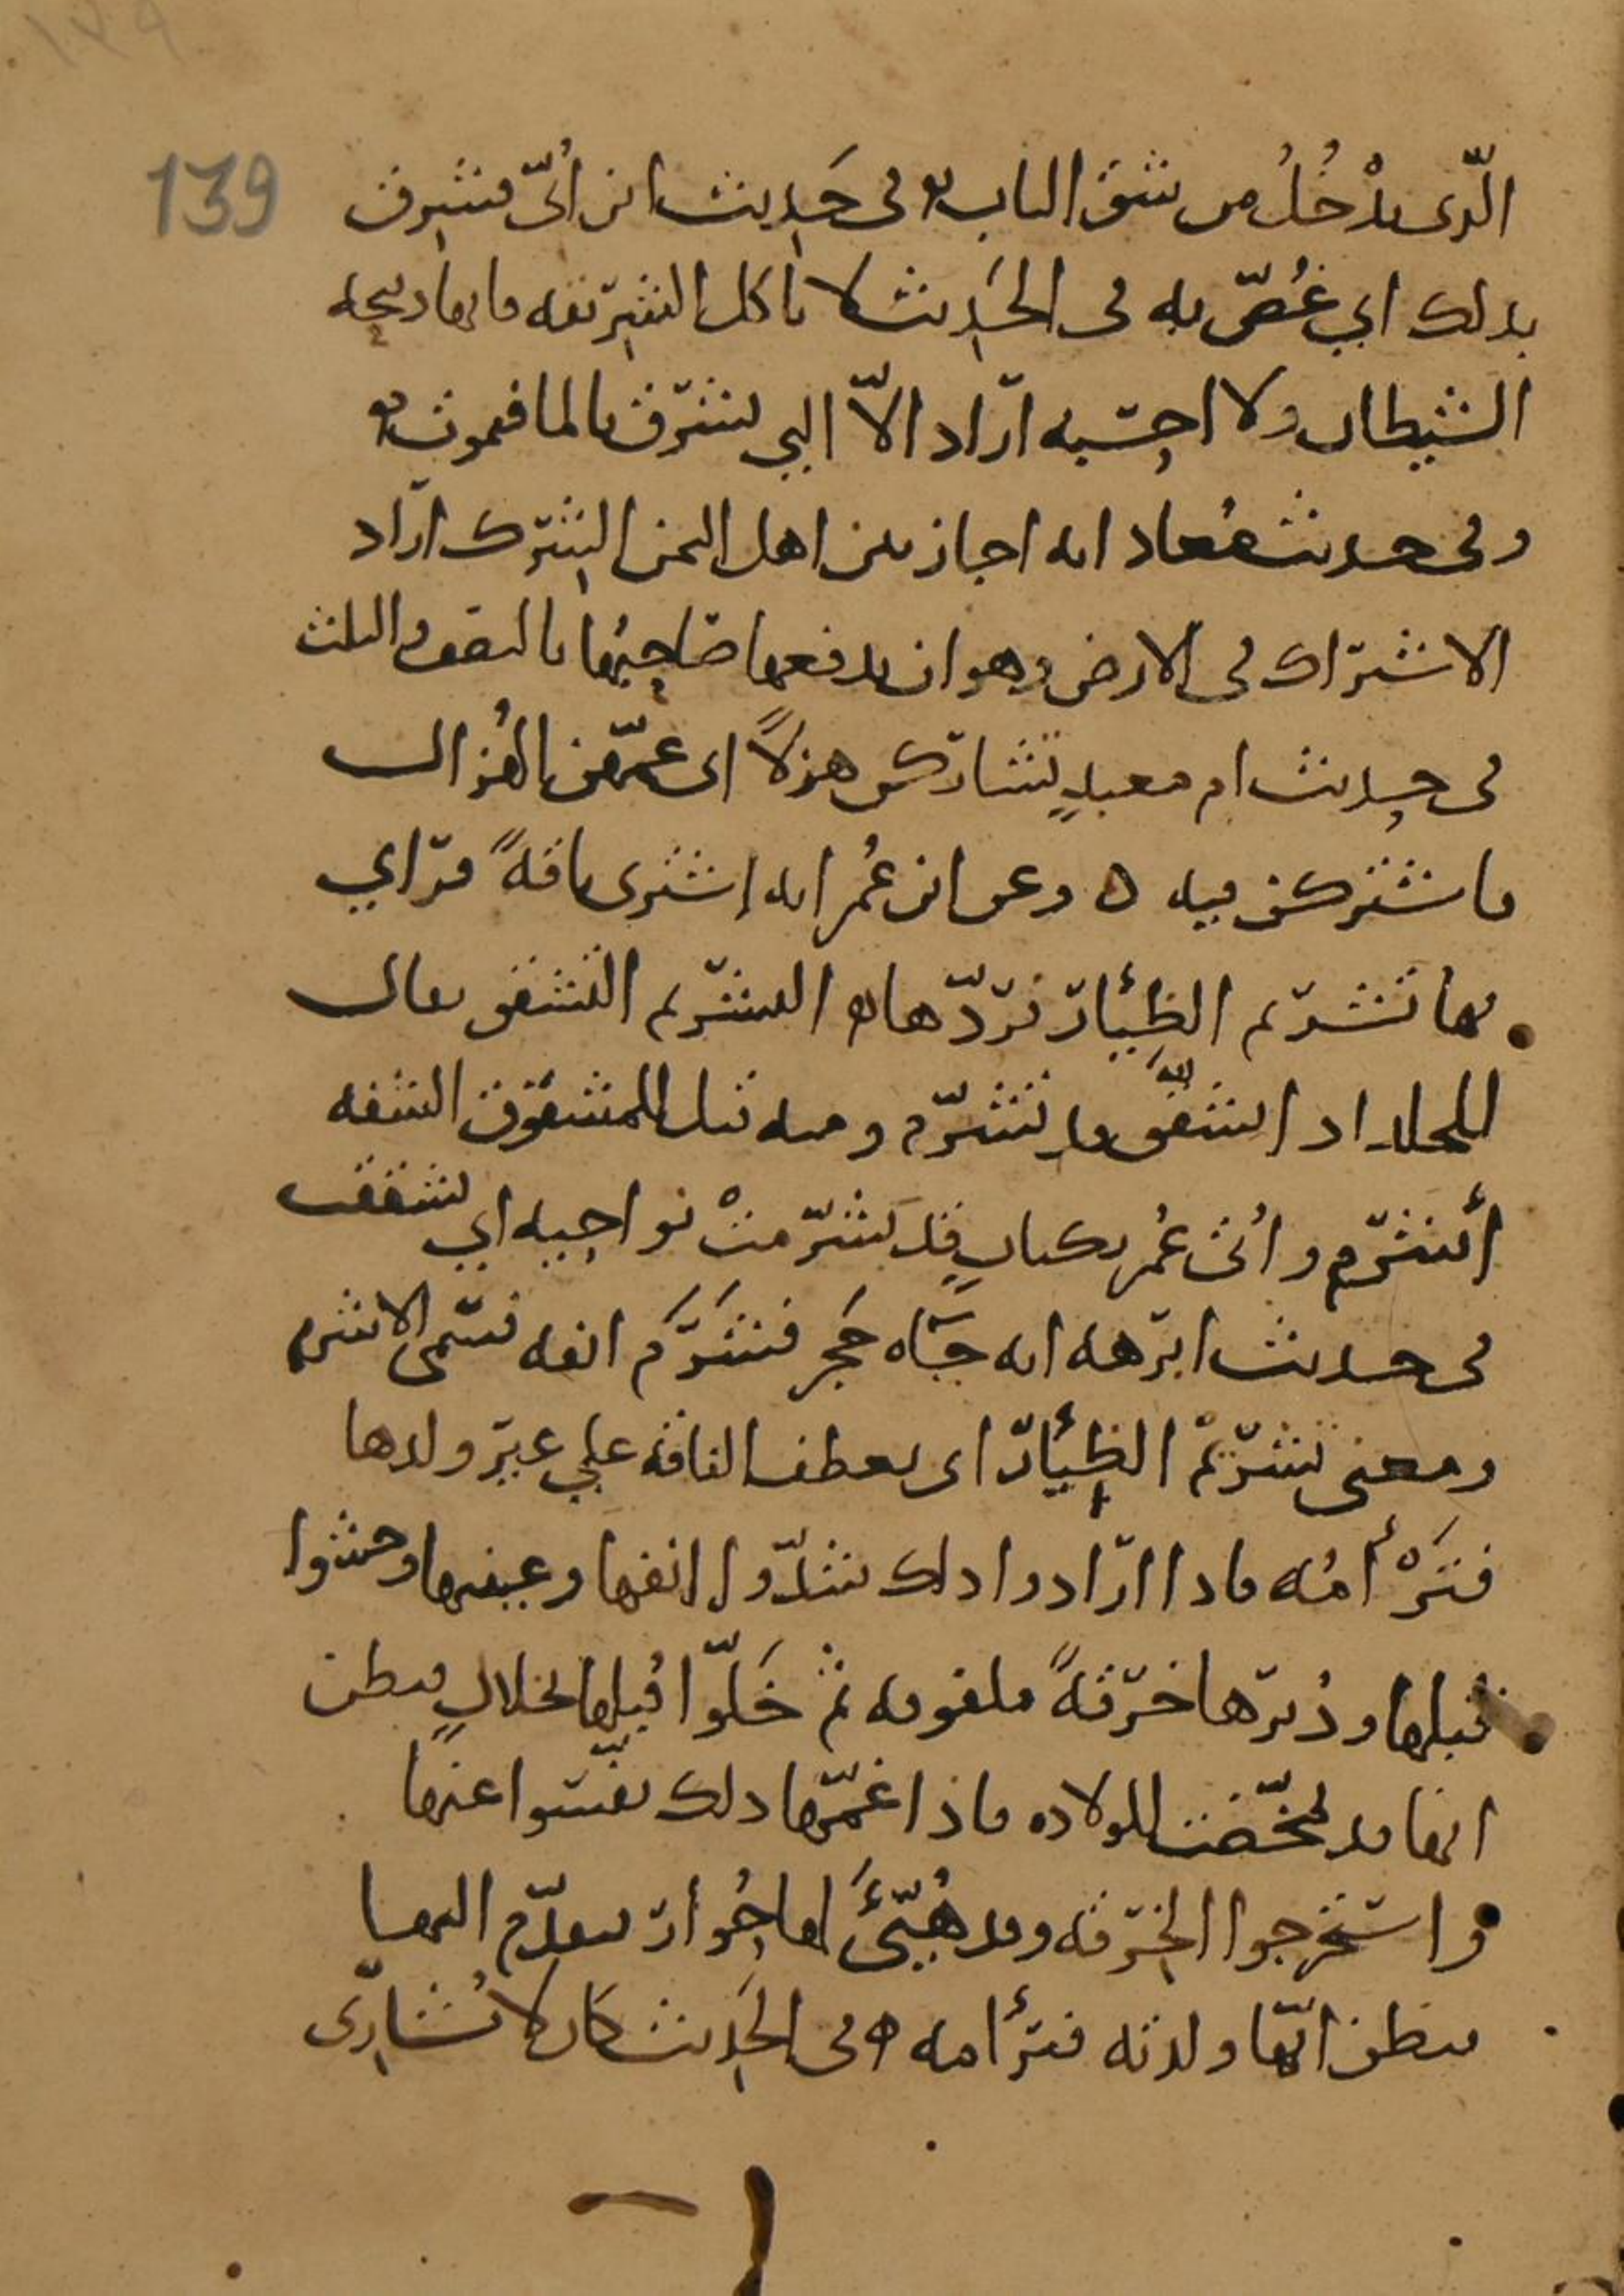 139
الّذى يدْخُلُ من شق الباب ه فى حَدِيث ابن أُبىّ فشرق
بذلك اي غُصّ به فى الحَدِيث لا تاكل الشريقه فانها ذبيحه
الشيطان ولا احسبه اراد الاّ التي تشرق بالما فتموت ه
وفى حديث مُعاد انه اجاز بين اهل اليمن الشرك اراد
الاشتراك فى الارض وهو ان يدفعها صاحبُها بالنصف والثلث
فى حديث ام معبدٍ تشاركن هزلاً اى عمّهن الهُزال
فاشتركن فيه ه وعن ابن عُمر انه اشترى ناقةً فراي
بها تشريم الظِئار فردّها ه التشريم التشقق يقال
للجلد اذا تشقّق قد تشرّم ومنه قيل للمشقوق الشفه
أشرم وأتى عُمر بكتابٍ قد تشرّمتْ نواحيه اي تشققت
فى حديث ابرهه انه جآه حَجر فشَرَمَ انفه فسمّى الاشرم
ومعنى تشرِيمْ الظِئار اى يعطف الناقه علي غير ولدها
فترْأمُه فاذا ارادوا ذلك شدّوا انفها وعينيها وحشوا
قبلها ودُبرها خرقةً ملفوفه ثم خَلّوا قُبلها بخلالٍ فيظن
انها قد تمخّضت للولاده فاذا غمّها ذلك نفّسوا عنها
واستخرجوا الخرقه وقد هُيّئَ لها حُوار فيقدّم اليها
فيظن انّها ولدته فترأمه ه فى الحَدِيث كان لا تُشارِى